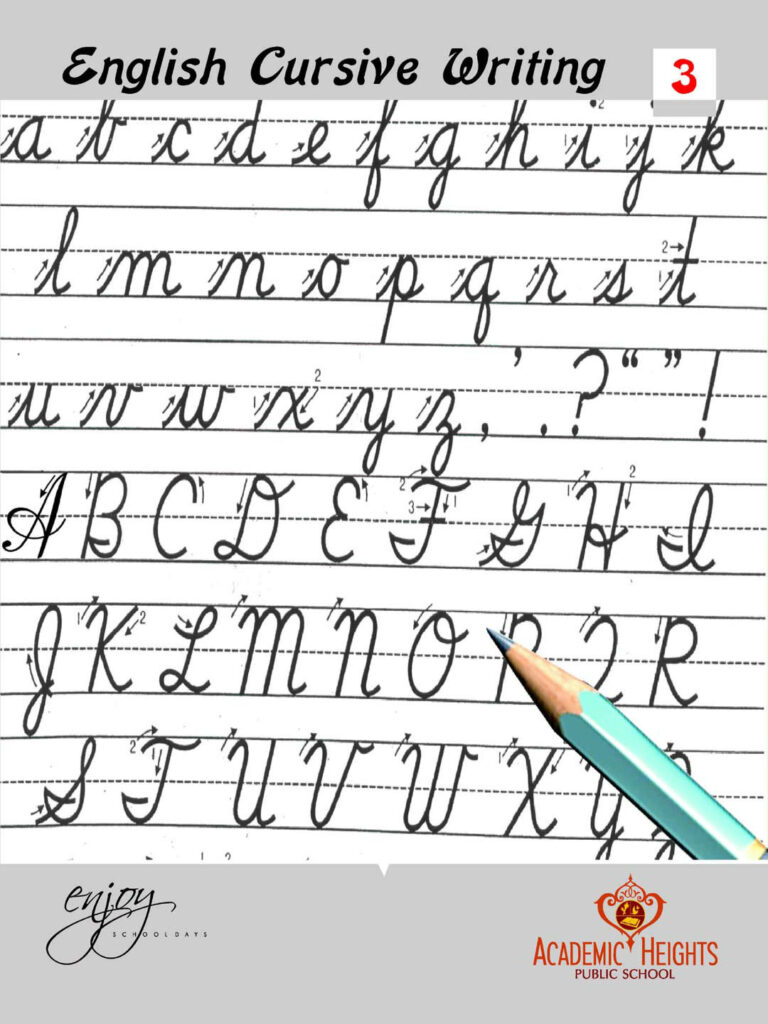 English Cursive Writing 3
a b c d e f g h i j k
l m n o p q r s t
u v w x y z , ' . ? “ ” !
A B C D E F G H I
J K L M N O P Q R
S T U V W X Y Z
enjoy
SCHOOLDAYS
ACADEMIC HEIGHTS
PUBLIC SCHOOL